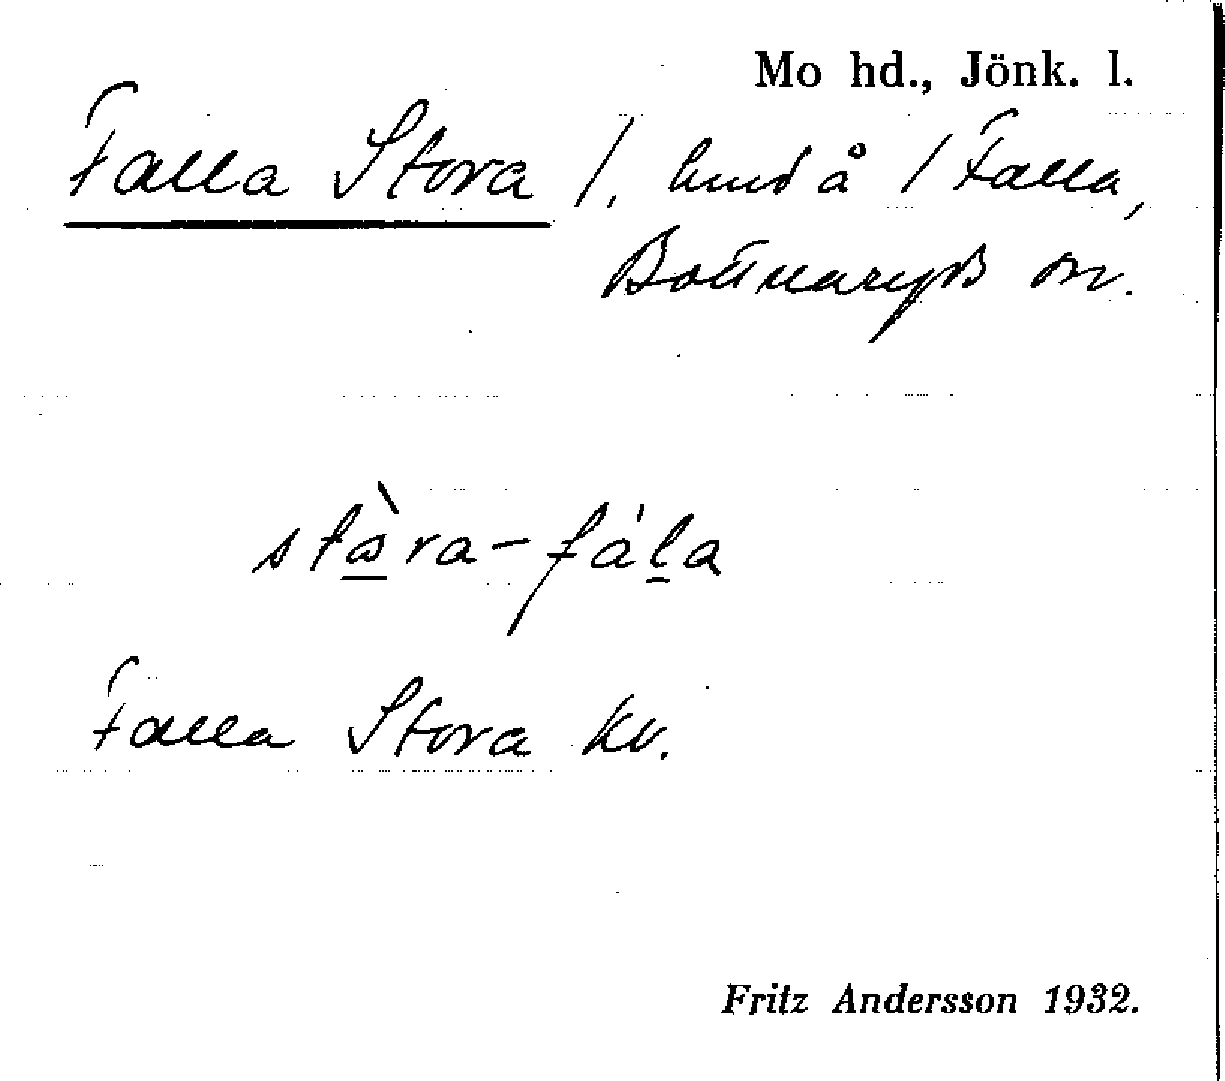 Mo hd., Jönk. l.
Falla Stora /. hmd å / Falla,
Bottnaryds sn.
stå̲̀ra-fál̲a
Falla Stora kv.
Fritz Andersson 1932.